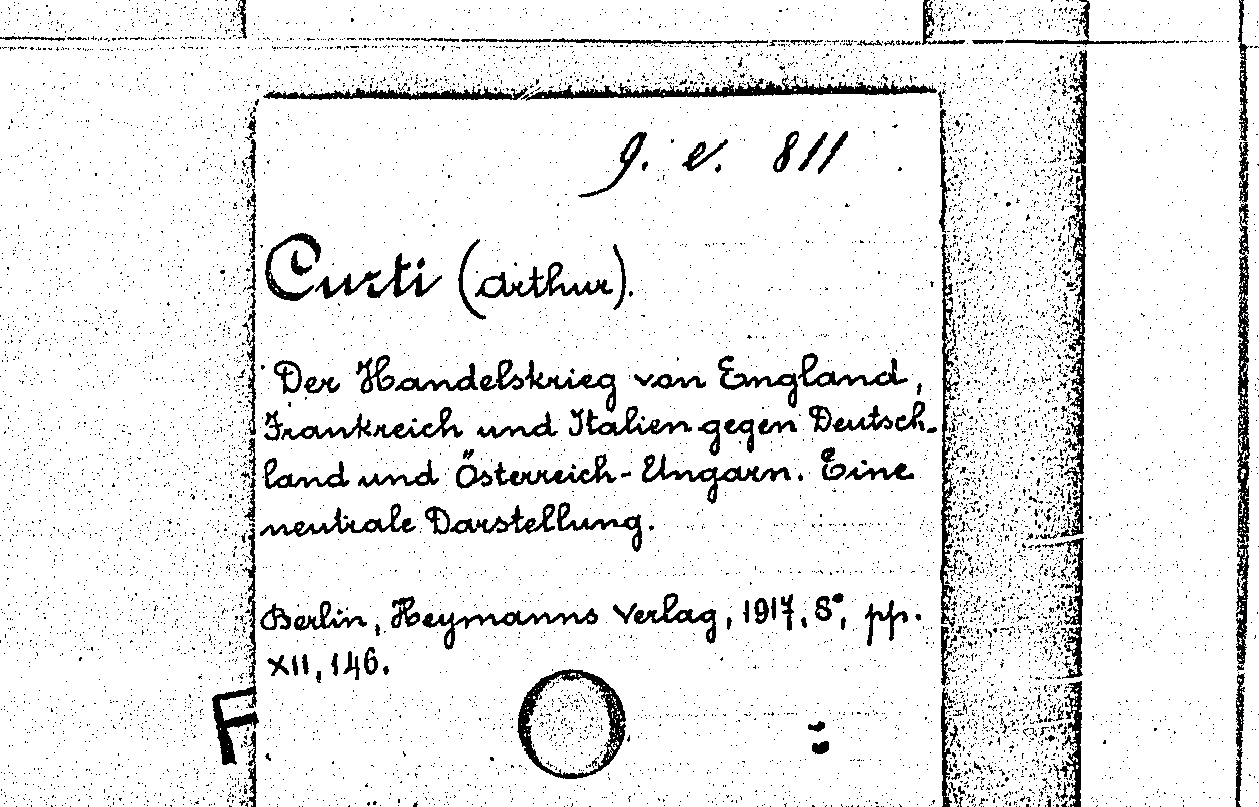 g. e. 811
Curti (Arthur).
Der Handelskrieg von England,
Frankreich und Italien gegen Deutsch-
land und Österreich-Ungarn. Eine
neutrale Darstellung.
Berlin, Heymanns Verlag, 1917, 8°, pp.
XII, 146.
F